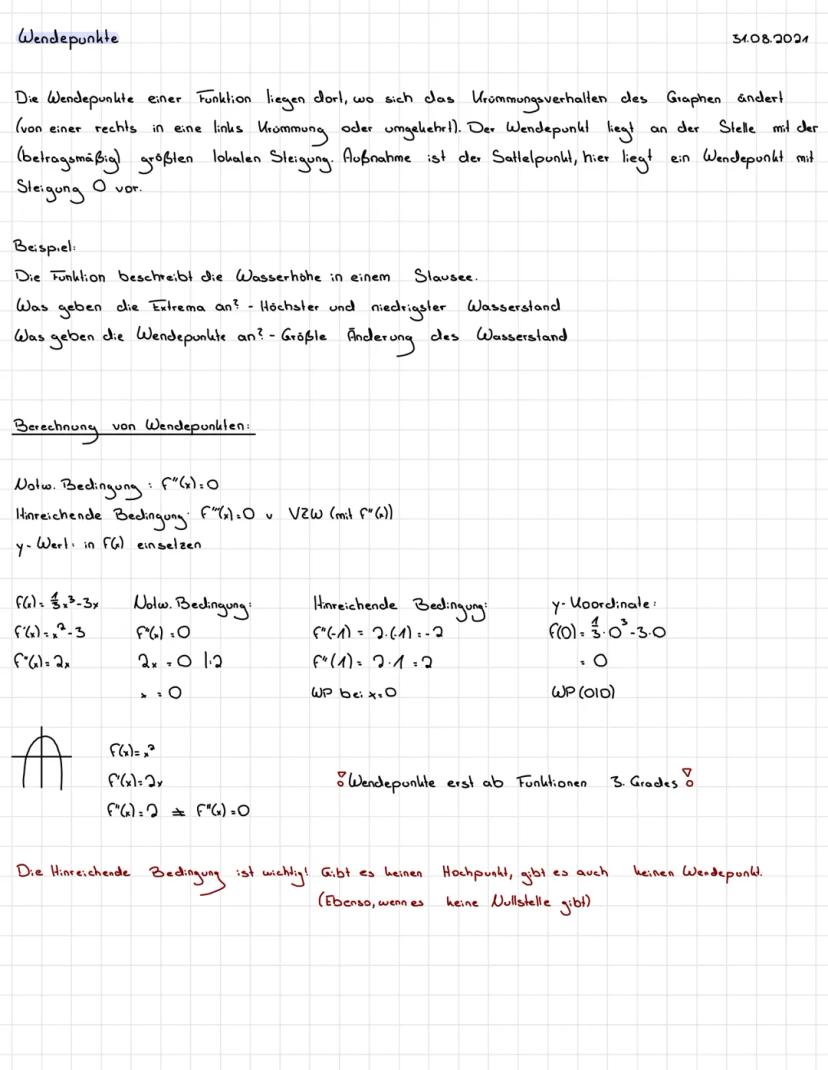 Wendepunkte 31.08.2021
Die Wendepunkte einer Funktion liegen dort, wo sich das Krümmungsverhalten des Graphen ändert
(von einer rechts in eine links Krümmung oder umgekehrt). Der Wendepunkt liegt an der Stelle mit der
(betragsmäßig) größten lokalen Steigung. Außnahme ist der Sattelpunkt, hier liegt ein Wendepunkt mit
Steigung 0 vor.
Beispiel:
Die Funktion beschreibt die Wasserhöhe in einem Stausee.
Was geben die Extrema an? - Höchster und niedrigster Wasserstand
Was geben die Wendepunkte an? - Größte Änderung des Wasserstand
Berechnung von Wendepunkten:
Notw. Bedingung: f''(x)=0
Hinreichende Bedingung: f'''(x)=0 v VZW (mit f''(x))
y-Wert: in f(x) einsetzen
f(x)=1/3x³-3x Notw. Bedingung: Hinreichende Bedingung: y-Koordinate:
f'(x)=x²-3 f''(x)=0 f''(-1)=2·(-1)=-2 f(0)=1/3·0³-3·0
f''(x)=2x 2x=0 |:2 f''(1)=2·1=2 =0
x=0 WP bei x=0 WP(0|0)
f(x)=x²
f'(x)=2x Wendepunkte erst ab Funktionen 3. Grades
f''(x)=2 ≠ f''(x)=0
Die Hinreichende Bedingung ist wichtig! Gibt es keinen Hochpunkt, gibt es auch keinen Wendepunkt.
(Ebenso, wenn es keine Nullstelle gibt)